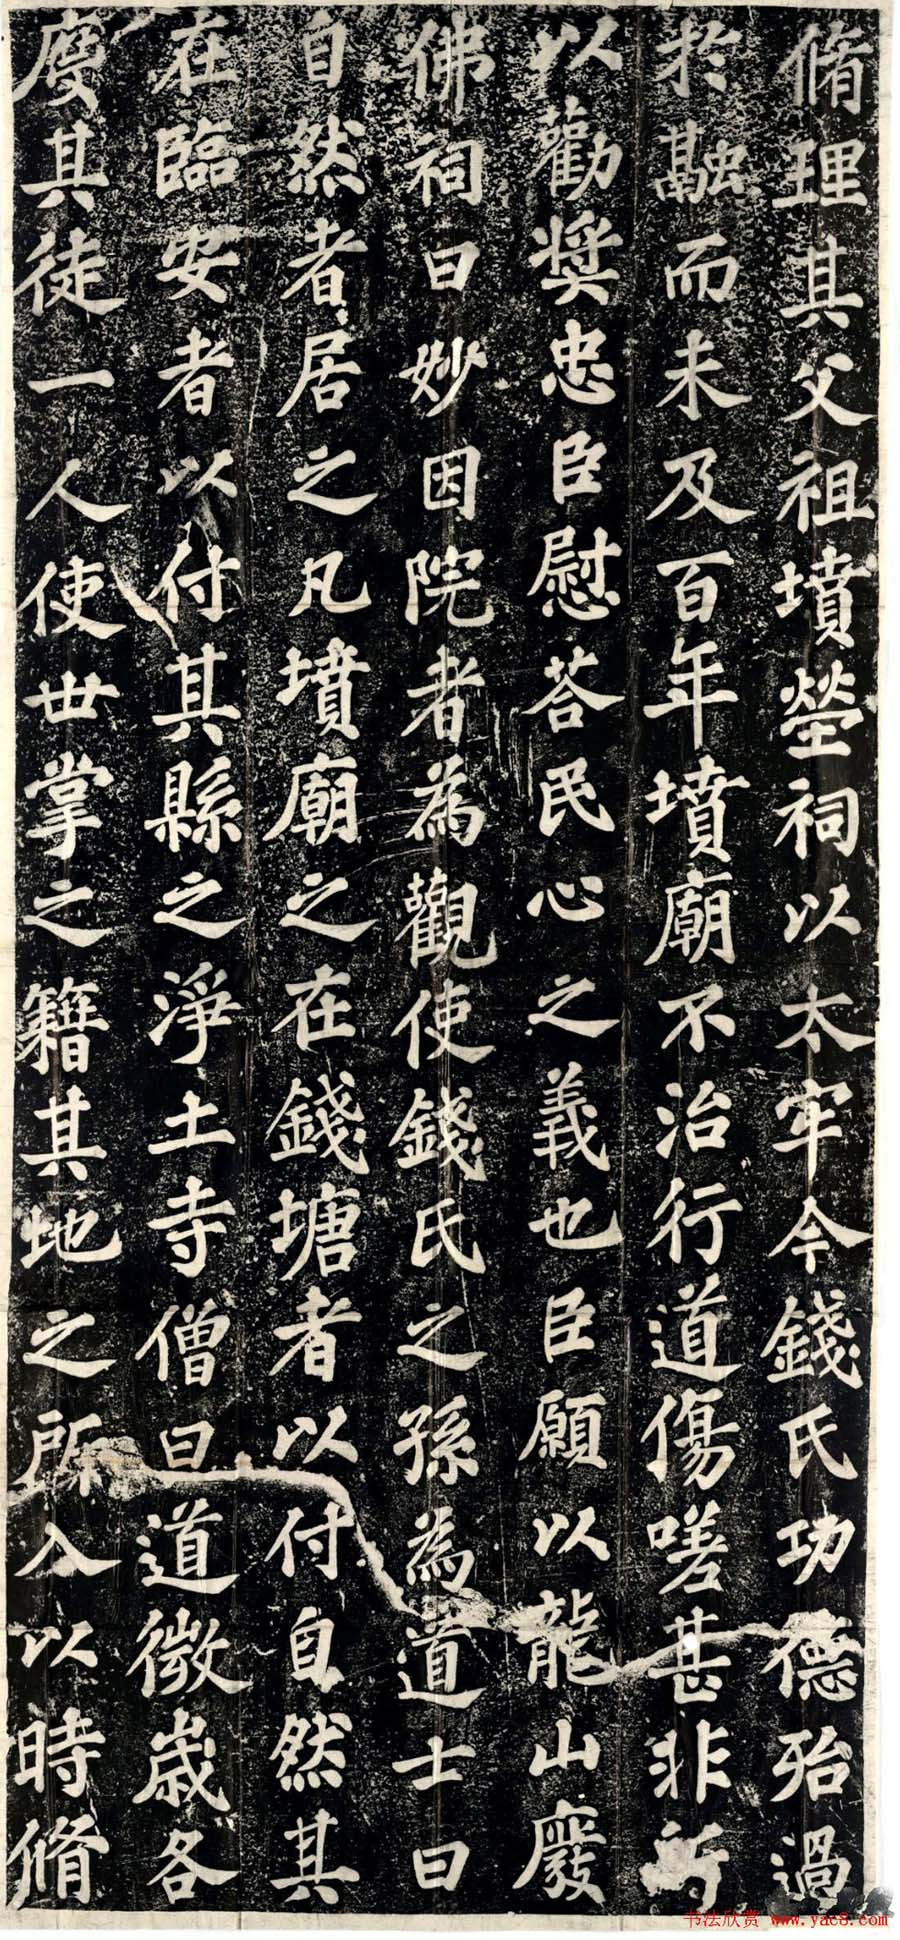 脩理其父祖墳塋祠以太牢今錢氏功德殆過
於融而未及百年墳廟不治行道傷嗟甚非所
以勸奬忠臣慰荅民心之義也臣願以龍山廢
佛祠曰妙因院者為觀使錢氏之孫為道士曰
自然者居之凡墳廟之在錢塘者以付自然其
在臨安者以付其縣之淨土寺僧曰道微歲各
度其徒一人使世掌之籍其地之所入以時脩
书法欣赏 www.yac8.com